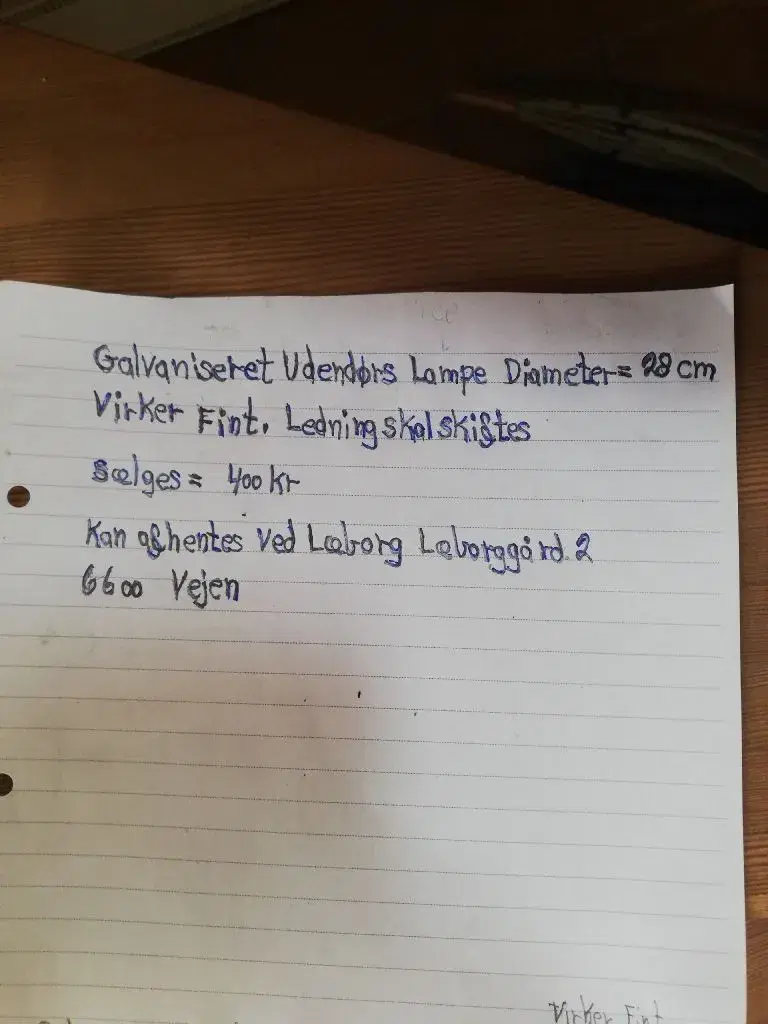 Galvaniseret Udendørs Lampe Diameter= 28 cm
Virker Fint. Ledning skal skiftes
Sælges = 400 kr
Kan afhentes Ved Læborg Læborggård 2
6600 Vejen
Virker Fint